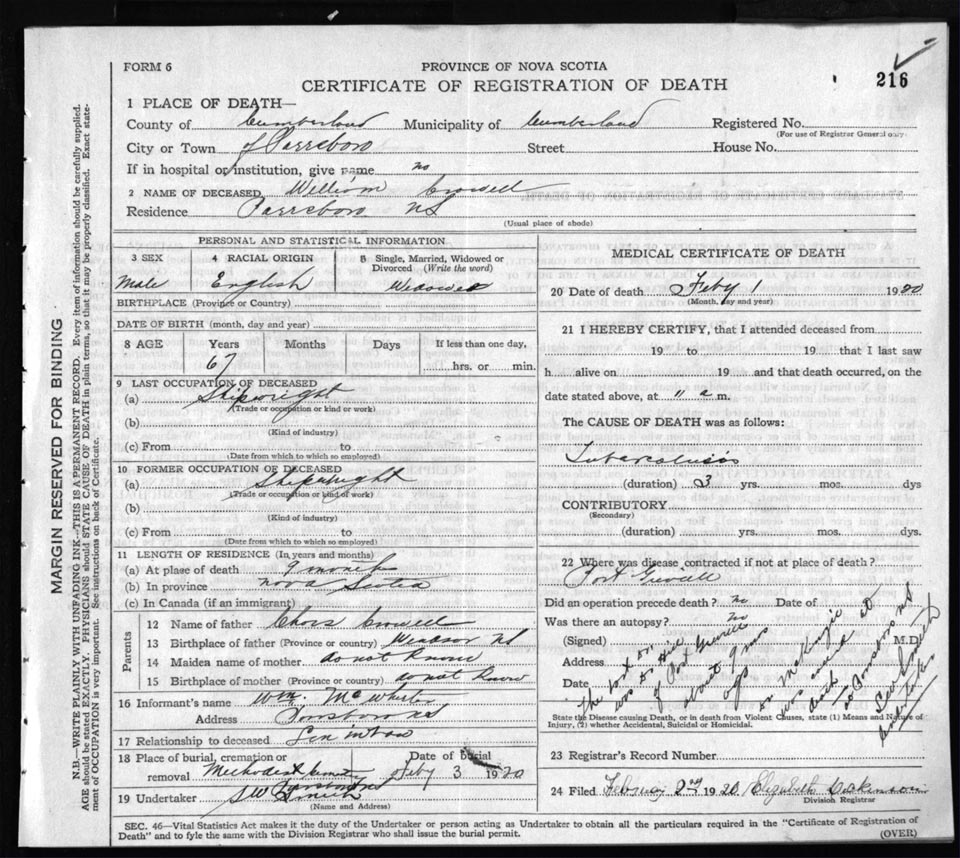 FORM 6
PROVINCE OF NOVA SCOTIA
216
CERTIFICATE OF REGISTRATION OF DEATH
1 PLACE OF DEATH—
County of Cumberland Municipality of Cumberland Registered No.
(For use of Registrar General only)
City or Town of Parrsboro Street House No.
If in hospital or institution, give name no
2 NAME OF DECEASED William Crowell
Residence Parrsboro NS
(Usual place of abode)
PERSONAL AND STATISTICAL INFORMATION
3 SEX 4 RACIAL ORIGIN 5 Single, Married, Widowed or Divorced (Write the word)
Male English Widowed
BIRTHPLACE (Province or Country)
DATE OF BIRTH (month, day and year)
8 AGE Years Months Days If less than one day,
67 hrs. or min.
9 LAST OCCUPATION OF DECEASED
(a) Shipwright
(Trade or occupation or kind or work)
(b)
(Kind of industry)
(c) From to
(Date from which to which so employed)
10 FORMER OCCUPATION OF DECEASED
(a) Shipwright
(Trade or occupation or kind of work)
(b)
(Kind of industry)
(c) From to
(Date from which to which so employed)
11 LENGTH OF RESIDENCE (In years and months)
(a) At place of death 9 month
(b) In province nova Scotia
(c) In Canada (if an immigrant)
Parents
12 Name of father Chars Crowell
13 Birthplace of father (Province or country) Windsor NS
14 Maiden name of mother do not know
15 Birthplace of mother (Province or country) do not know
16 Informant's name Wm. McWhirter
Address Parrsboro NS
17 Relationship to deceased Son in law
18 Place of burial, cremation or removal Methodist Date of burial Feby 3 1920
19 Undertaker S W Smith
(Name and Address)
MEDICAL CERTIFICATE OF DEATH
20 Date of death Feby 1 1920
(Month, day and year)
21 I HEREBY CERTIFY, that I attended deceased from
19 to 19 that I last saw
h alive on 19 and that death occurred, on the
date stated above, at 11 a m.
The CAUSE OF DEATH was as follows:
Tuberculosis
(duration) 3 yrs. mos. dys
CONTRIBUTORY
(Secondary)
(duration) yrs. mos. dys.
22 Where was disease contracted if not at place of death?
Port Greville
Did an operation precede death? no Date of
Was there an autopsy? no
(Signed) M.D.
Address
Date
The last Dr
was Dr Hill
of Port Greville
about 9 mos
ago
Dr McKenzie
was away at
death
State the Disease causing Death, or in death from Violent Causes, state (1) Means and Nature of
Injury, (2) whether Accidental, Suicidal or Homicidal.
23 Registrar's Record Number
24 Filed February 2nd 1920 Elizabeth
Division Registrar
SEC. 46—Vital Statistics Act makes it the duty of the Undertaker or person acting as Undertaker to obtain all the particulars required in the "Certificate of Registration of
Death" and to fyle the same with the Division Registrar who shall issue the burial permit.
(OVER)
MARGIN RESERVED FOR BINDING
N.B.—WRITE PLAINLY WITH UNFADING INK—THIS IS A PERMANENT RECORD. Every item of information should be carefully supplied.
AGE should be stated EXACTLY. PHYSICIANS should STATE CAUSE OF DEATH in plain terms, so that it may be properly classified. Exact state-
ment of OCCUPATION is very important. See instructions on back of Certificate.